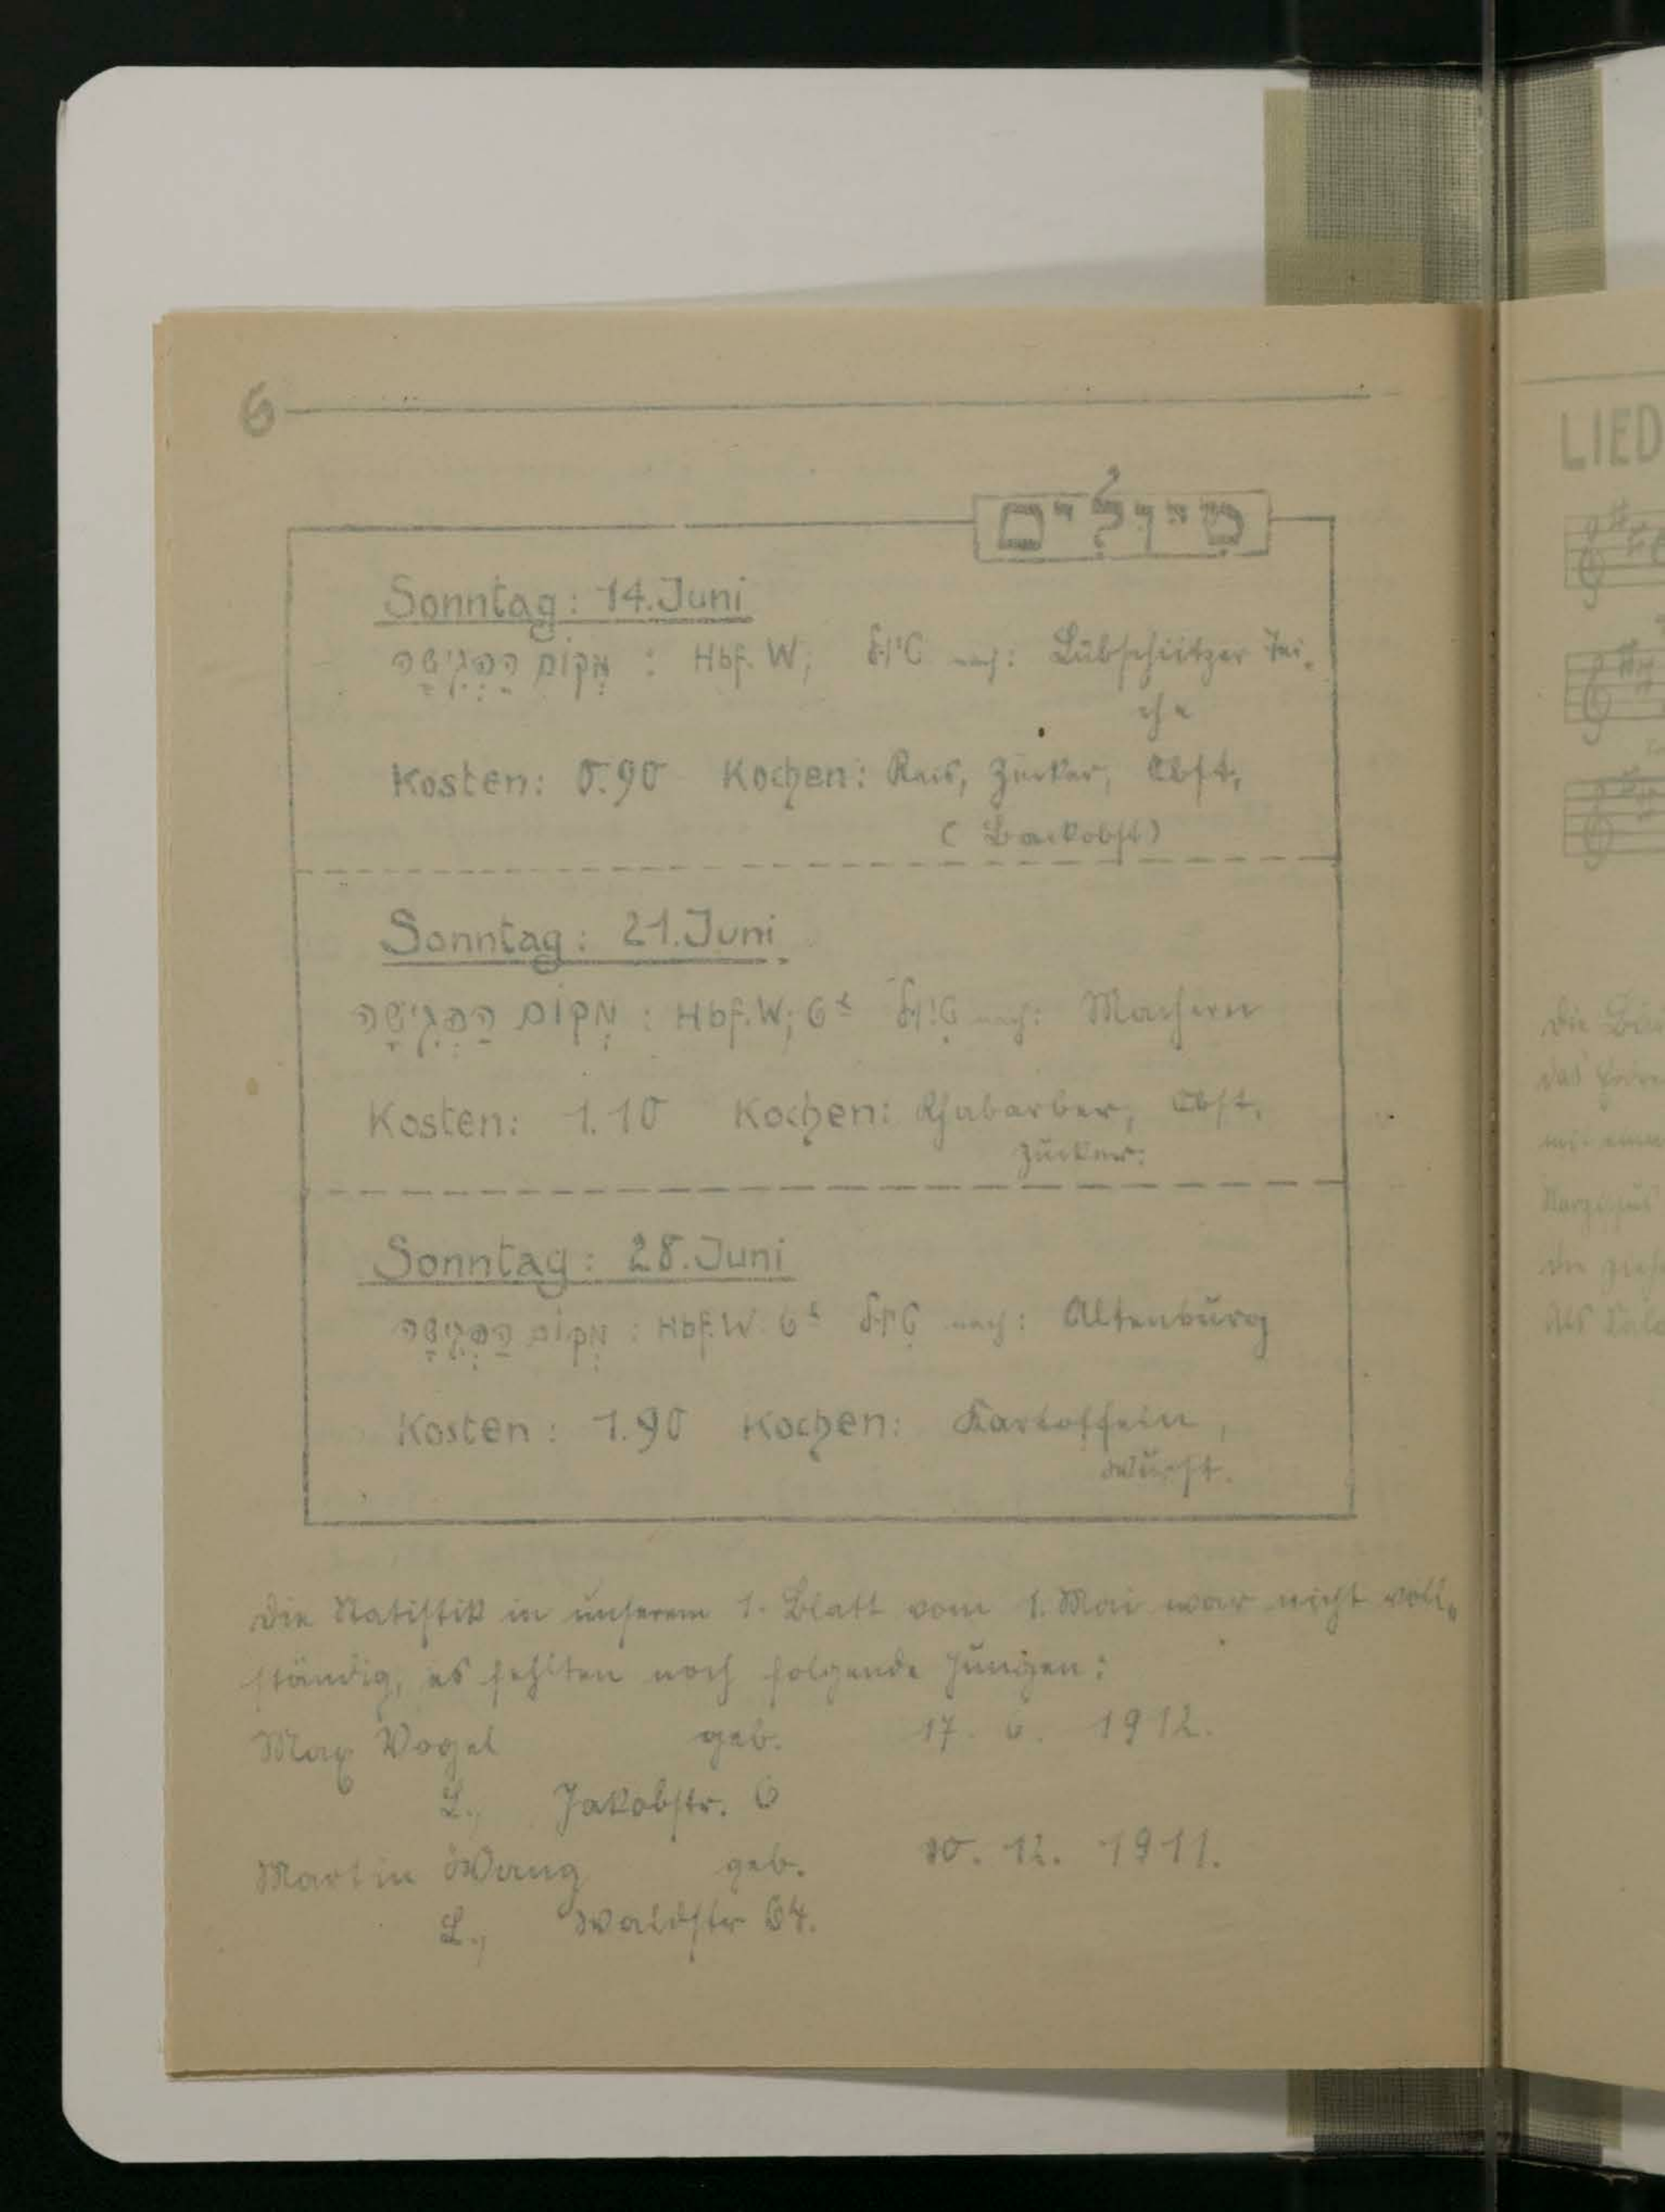 6
טִיּוּלִים
Sonntag: 14. Juni
מְקוֹם הַפְּגִישָׁה : Hbf. W; טיול nach: Lübschützer Tei-
che
Kosten: 0.90 Kochen: Reis, Zucker, Obst,
(Backobst)
Sonntag: 21. Juni
מְקוֹם הַפְּגִישָׁה : Hbf. W; 6 טיול nach: Machern
Kosten: 1.10 Kochen: Rhabarber, Obst,
Zucker.
Sonntag: 28. Juni
מְקוֹם הַפְּגִישָׁה : Hbf. W 6 טיול nach: Altenburg
Kosten: 1.90 Kochen: Kartoffeln,
Wurst.
Die Statistik in unserem 1. Blatt vom 1. Mai war nicht voll-
ständig, es fehlten noch folgende Jungen:
Max Vogel geb. 17. 1912.
L., Jakobstr. 6
Martin geb. 12. 1911.
L., Waldstr 64.
LIED
Die
das
mit einem
Narzissus
die
Als